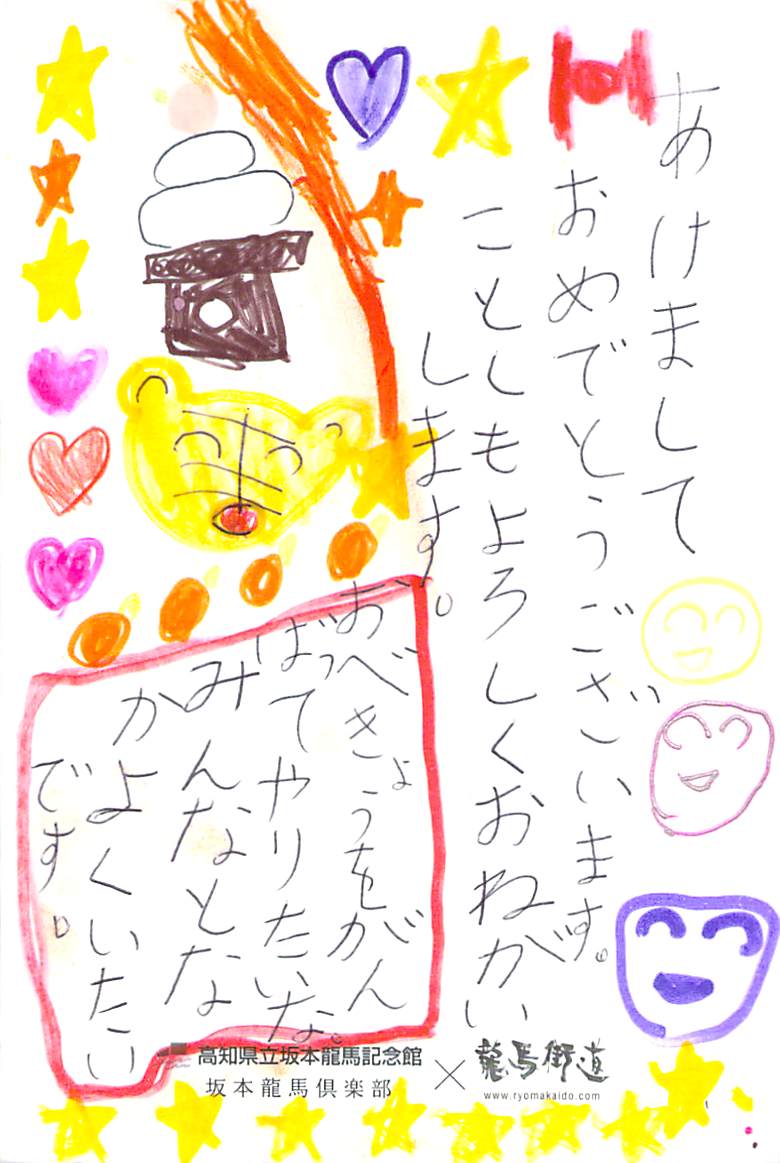 あけまして
おめでとうございます。
ことしもよろしくおねがい
します。
おべきょうをがん
ばってやりたいな。
みんなとな
かよくいたい
です。
高知県立坂本龍馬記念館
坂本龍馬倶楽部
×
龍馬街道
www.ryomakaido.com